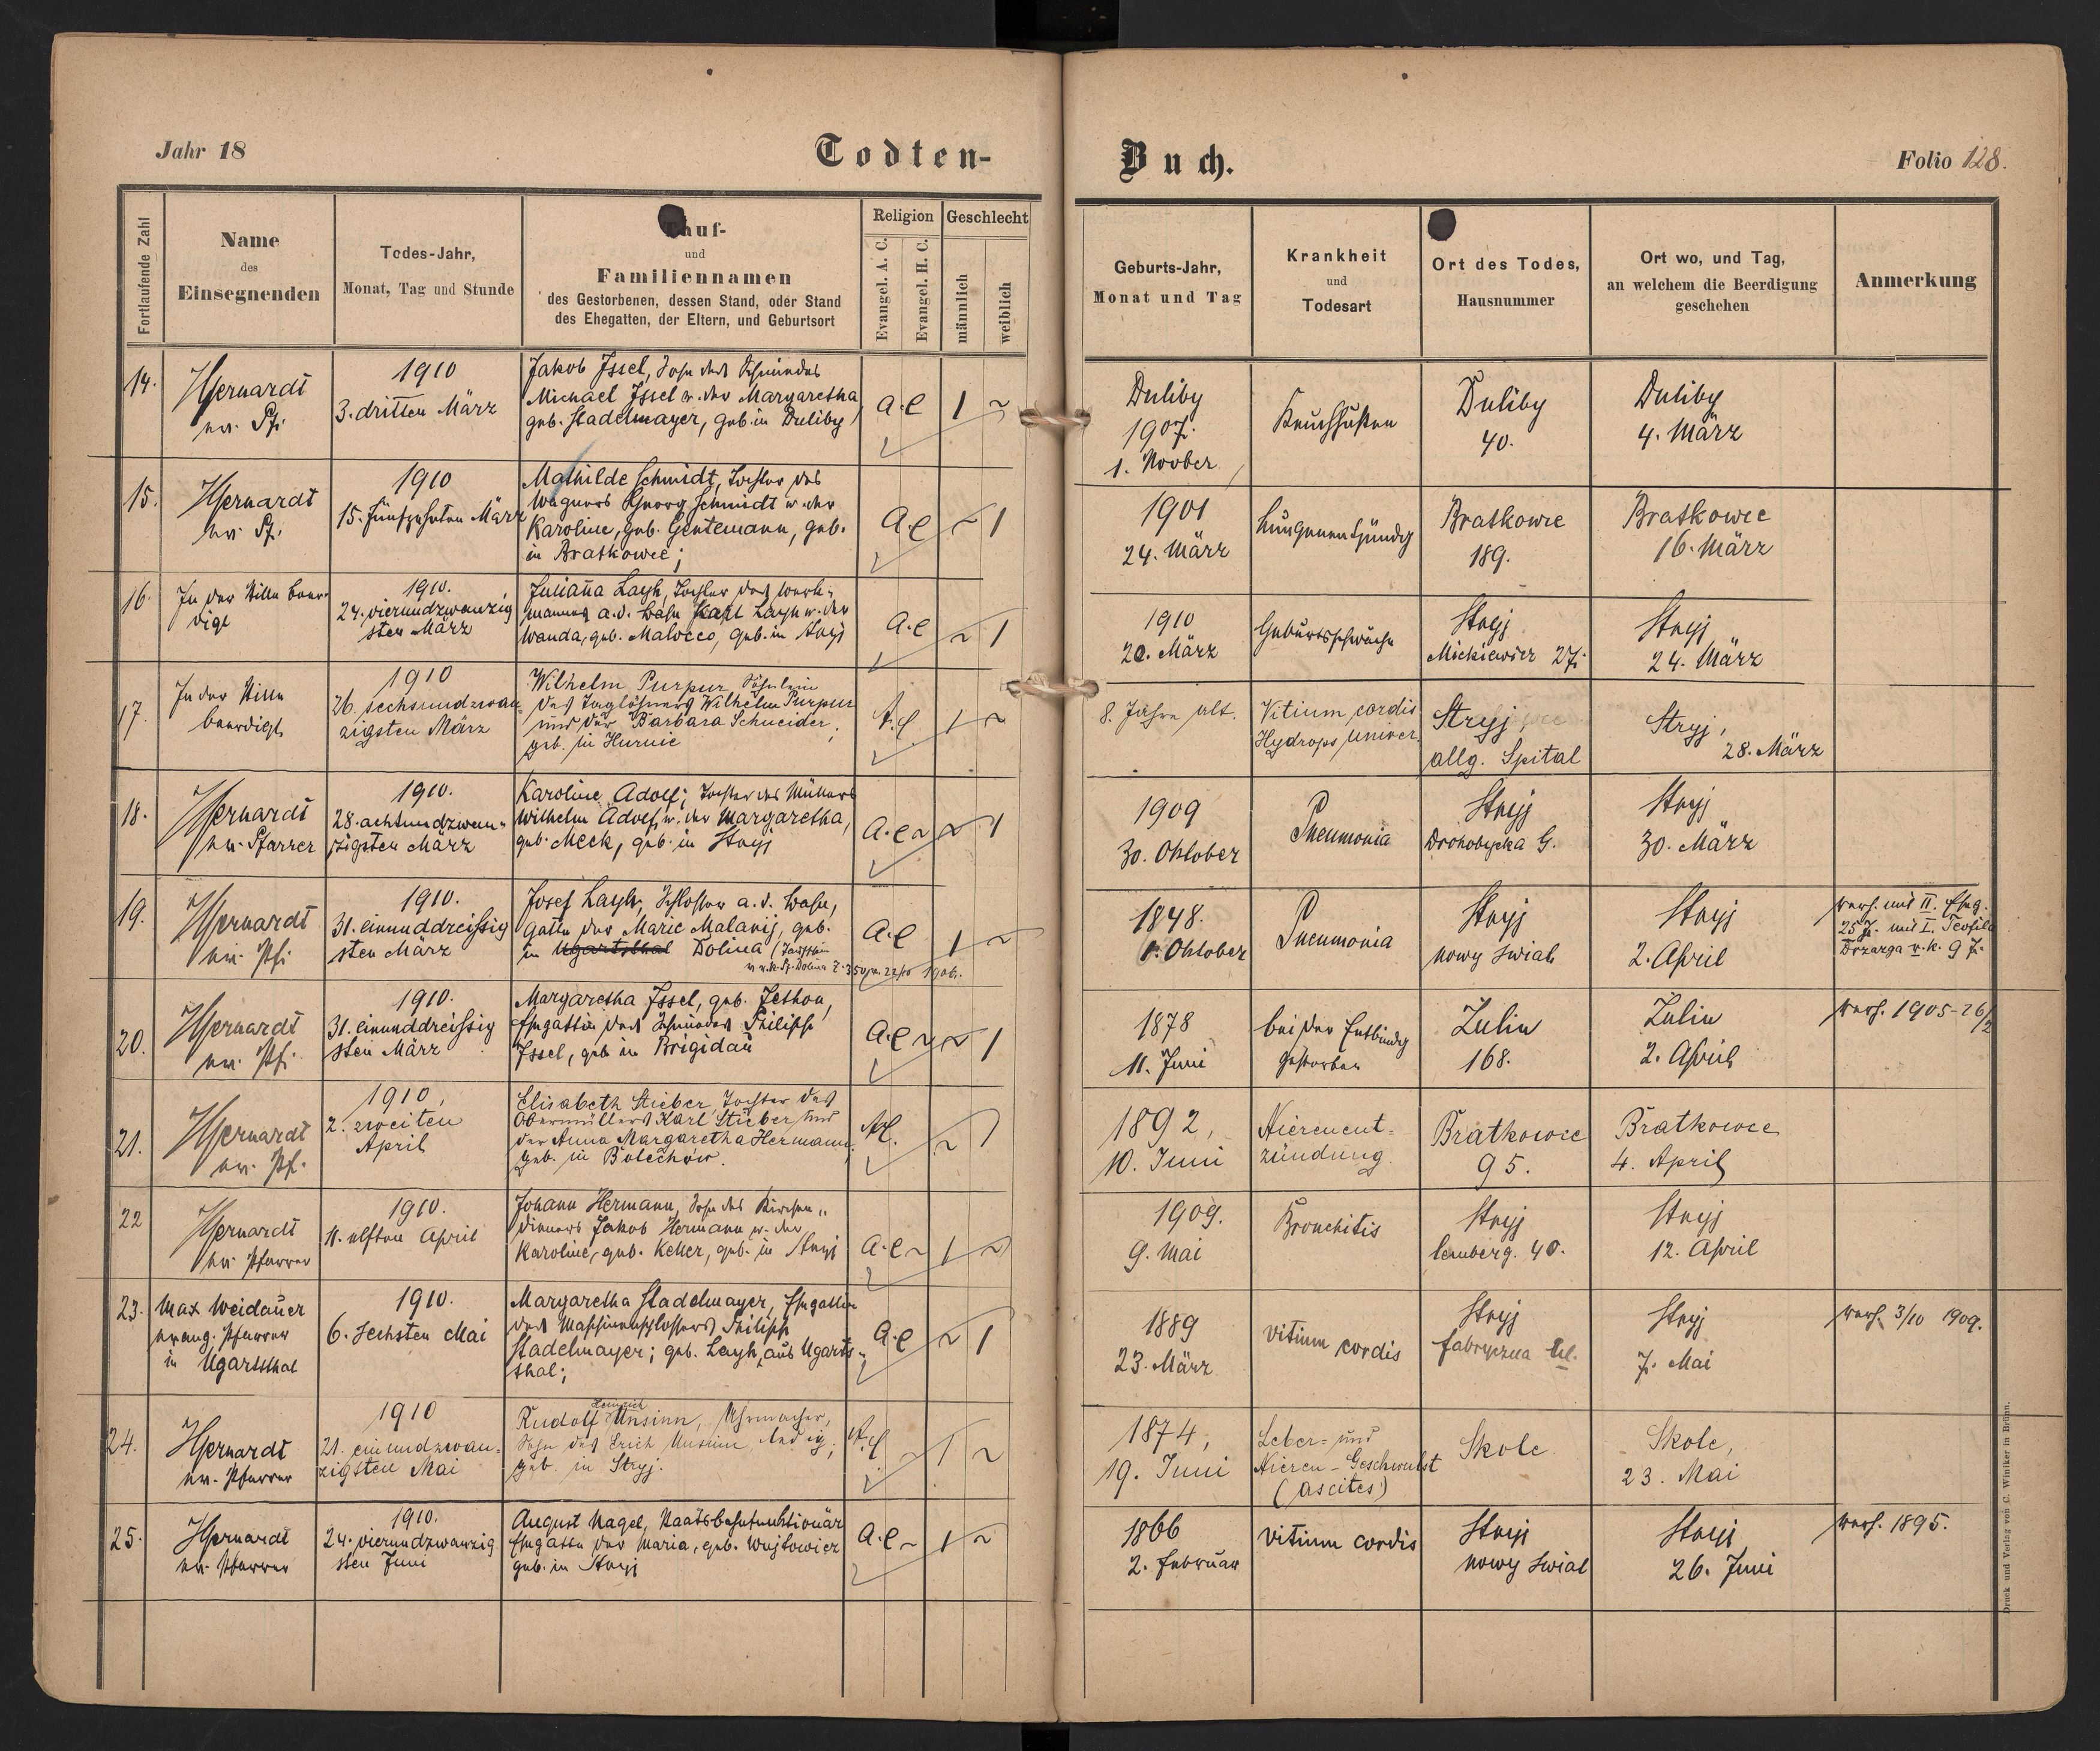 Jahr 18
Todten-
Buch.
Folio 128.
Fortlaufende Zahl
Name
des
Einsegnenden
Todes-Jahr,
Monat, Tag und Stunde
Tauf-
und
Familiennamen
des Gestorbenen, dessen Stand, oder Stand
des Ehegatten, der Eltern, und Geburtsort
Religion
Evangel. A. C.
Evangel. H. C.
Geschlecht
männlich
weiblich
Geburts-Jahr,
Monat und Tag
Krankheit
und
Todesart
Ort des Todes,
Hausnummer
Ort wo, und Tag,
an welchem die Beerdigung
geschehen
Anmerkung
14.
1910
3. dritten März
Jakob Issel, Sohn des Schmiedes
Michael Issel u. der Margaretha
geb. Stadelmayer, geb. in Duliby
A.C
1 ~
Duliby
1907.
1. Novber
Keuchhusten
Duliby
40.
Duliby
4. März
15.
1910
15. fünfzehnten März
Mathilde Schmidt, Tochter des
Wagners Georg Schmidt u. der
Karoline, geb. Gentemann, geb.
in Bratkowce;
A.C
~ 1
1901
24. März
Lungenentzündg
Bratkowce
189.
Bratkowce
16. März
16.
In der Stille beer-
digt
1910.
24. vierundzwanzig
sten März
Juliana Layh, Tochter des Werk-
mannes a.d. Bahn Karl Layh u. der
Wanda, geb. Malocco, geb. in Stryj
A.C
~ 1
1910
20. März
Geburtsschwäche
Stryj
Mickiewicz 27.
Stryj
24. März
17.
In der Stille
beerdigt
1910
26. sechsundzwan
zigsten März
Wilhelm Purpur Söhnlein
des Taglöhners Wilhelm Purpur
und der Barbara Schneider,
geb. in Hurnie
A.C
1 ~
8. Jahre alt.
Vitium cordis
Hydrops univer.
Stryj,
allg. Spital
Stryj,
28. März
18.
Pfarrer
1910.
28. achtundzwan-
zigsten März
Karoline Adolf; Tochter des Müllers
Wilhelm Adolf u. der Margaretha,
geb. Meck, geb. in Stryj
A.C ~
~ 1
1909
30. Oktober
Pneumonia
Stryj
Drohobycka G.
Stryj
30. März
19.
1910.
31. einunddreißig
sten März
Josef Layh, Schlosser a.d. Bahn,
Gatte der Marie Malanij, geb.
in Ugartsthal Dolina
A.C
1 ~
1848.
1. Oktober
Pneumonia
Stryj
nowy swiat
Stryj
2. April
verh. mit II. Ehg.
25 J. mit I. Teofila
Drzarga v.k. 9 J.
20.
1910.
31. einunddreißig
sten März
Margaretha Issel, geb. Jethon,
Ehegattin des Schmiedes Philipp
Issel, geb. in Brigidau
A.C ~
~ 1
1878
11. Juni
bei der Entbindg
gestorben
Zulin
168.
Zulin
2. April
verh. 1905-26/2
21.
1910,
2. zweiten
April
Elisabeth Stieber, Tochter des
Obermüllers Karl Stieber und
der Anna Margaretha Hermann,
geb. in Bolechów.
A.C.
~ 1
1892,
10. Juni
Nierenent-
zündung.
Bratkowce
95.
Bratkowce
4. April
22
Pfarrer
1910.
11. elften April
Johann Hermann, Sohn des Kirchen-
dieners Jakob Hermann u. der
Karoline, geb. Keller, geb. in Stryj
A.C ~
1 ~
1909.
9. Mai
Bronchitis
Stryj
Lemberg. 40.
Stryj
12. April
23.
Max Weidauer
evang. Pfarrer
in Ugartsthal
1910.
6. sechsten Mai
Margaretha Stadelmayer, Ehegattin
des Maschinenschlossers Philipp
Stadelmayer; geb. Layh, aus Ugarts-
thal;
A.C
~ 1
1889
23. März
vitium cordis
Stryj
fabryczna Ul.
Stryj
7. Mai
verh. 3/10 1909.
24.
Pfarrer
1910
21. einundzwan-
zigsten Mai
Heinrich
Rudolf Unsinn, Uhrmacher,
Sohn des Erich Unsinn, ledig,
geb. in Stryj.
A.C
~ 1 ~
1874,
19. Juni
Leber- und
Nieren-Geschwulst
(ascites)
Skole
Skole,
23. Mai
25.
Pfarrer
1910.
24. vierundzwanzig
sten Juni
August Nagel, Staatsbahnfunktionär
Ehegatte der Maria, geb. Wojtowicz
geb. in Stryj
A.C ~
1 ~
1866
2. Februar
vitium cordis
Stryj
nowy swiat
Stryj
26. Juni
verh. 1895.
Druck und Verlag von C. Winiker in Brünn.